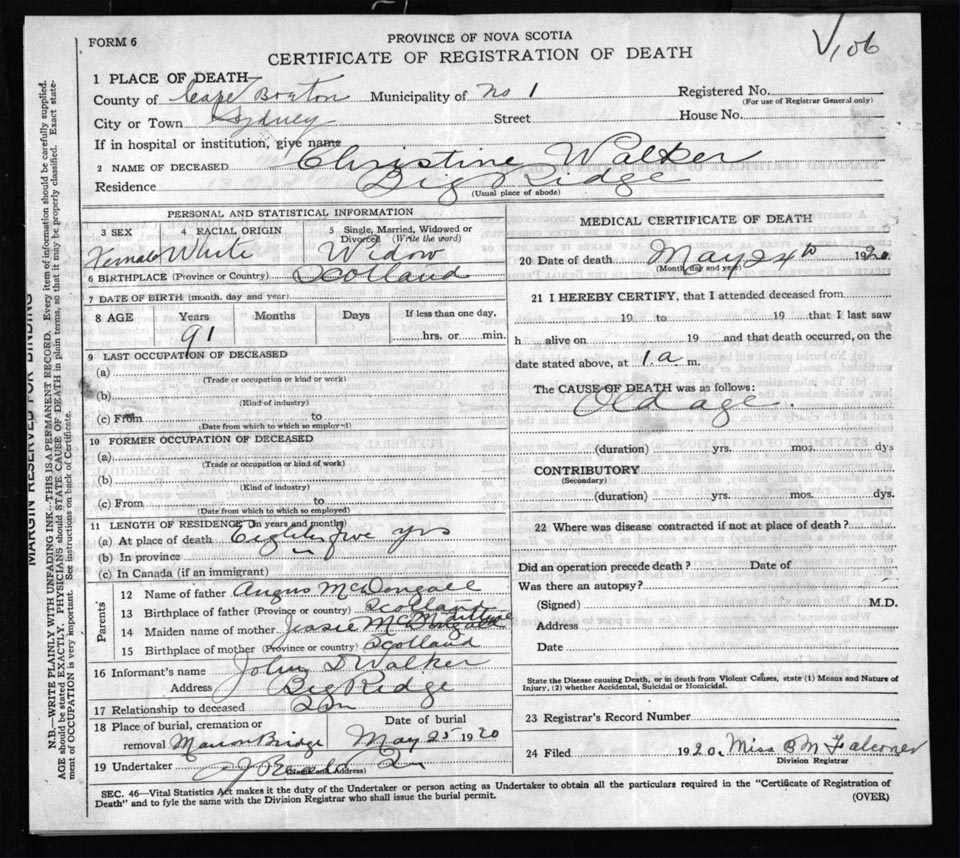 FORM 6
PROVINCE OF NOVA SCOTIA
CERTIFICATE OF REGISTRATION OF DEATH
V106
1 PLACE OF DEATH
County of Cape Breton Municipality of No 1 Registered No.
(For use of Registrar General only)
City or Town Sydney Street House No.
If in hospital or institution, give name
2 NAME OF DECEASED Christine Walker
Residence Big Ridge
(Usual place of abode)
PERSONAL AND STATISTICAL INFORMATION
3 SEX 4 RACIAL ORIGIN 5 Single, Married, Widowed or Divorced (Write the word)
Female White Widow
6 BIRTHPLACE (Province or Country) Scotland
7 DATE OF BIRTH (month, day and year)
8 AGE Years Months Days If less than one day,
91 hrs. or min.
9 LAST OCCUPATION OF DECEASED
(a)
(Trade or occupation or kind or work)
(b)
(Kind of industry)
(c) From to
(Date from which to which so employed)
10 FORMER OCCUPATION OF DECEASED
(a)
(Trade or occupation or kind of work)
(b)
(Kind of industry)
(c) From to
(Date from which to which so employed)
11 LENGTH OF RESIDENCE (in years and months)
(a) At place of death five yrs
(b) In province "
(c) In Canada (if an immigrant)
Parents
12 Name of father Angus McDongall
13 Birthplace of father (Province or country) Scotland
14 Maiden name of mother Jessie
15 Birthplace of mother (Province or country) Scotland
16 Informant's name John D Walker
Address Big Ridge
17 Relationship to deceased Son
18 Place of burial, cremation or Date of burial
removal Marion Bridge May 25 1920
19 Undertaker
(Name and Address)
MEDICAL CERTIFICATE OF DEATH
20 Date of death May 24th 1920
(Month, day and year)
21 I HEREBY CERTIFY, that I attended deceased from
19 to 19 that I last saw
h alive on 19 and that death occurred, on the
date stated above, at 1.a m.
The CAUSE OF DEATH was as follows:
Old age
(duration) yrs. mos. dys
CONTRIBUTORY
(Secondary)
(duration) yrs. mos. dys.
22 Where was disease contracted if not at place of death?
Did an operation precede death? Date of
Was there an autopsy?
(Signed) M.D.
Address
Date
State the Disease causing Death, or in death from Violent Causes, state (1) Means and Nature of
Injury, (2) whether Accidental, Suicidal or Homicidal.
23 Registrar's Record Number
24 Filed 1920. Miss B M Falconer
Division Registrar
SEC. 46—Vital Statistics Act makes it the duty of the Undertaker or person acting as Undertaker to obtain all the particulars required in the "Certificate of Registration of
Death" and to fyle the same with the Division Registrar who shall issue the burial permit.
(OVER)
MARGIN RESERVED FOR BINDING
N.B.—WRITE PLAINLY WITH UNFADING INK—THIS IS A PERMANENT RECORD. Every item of information should be carefully supplied.
AGE should be stated EXACTLY. PHYSICIANS should STATE CAUSE OF DEATH in plain terms, so that it may be properly classified. Exact state-
ment of OCCUPATION is very important. See instructions on back of Certificate.